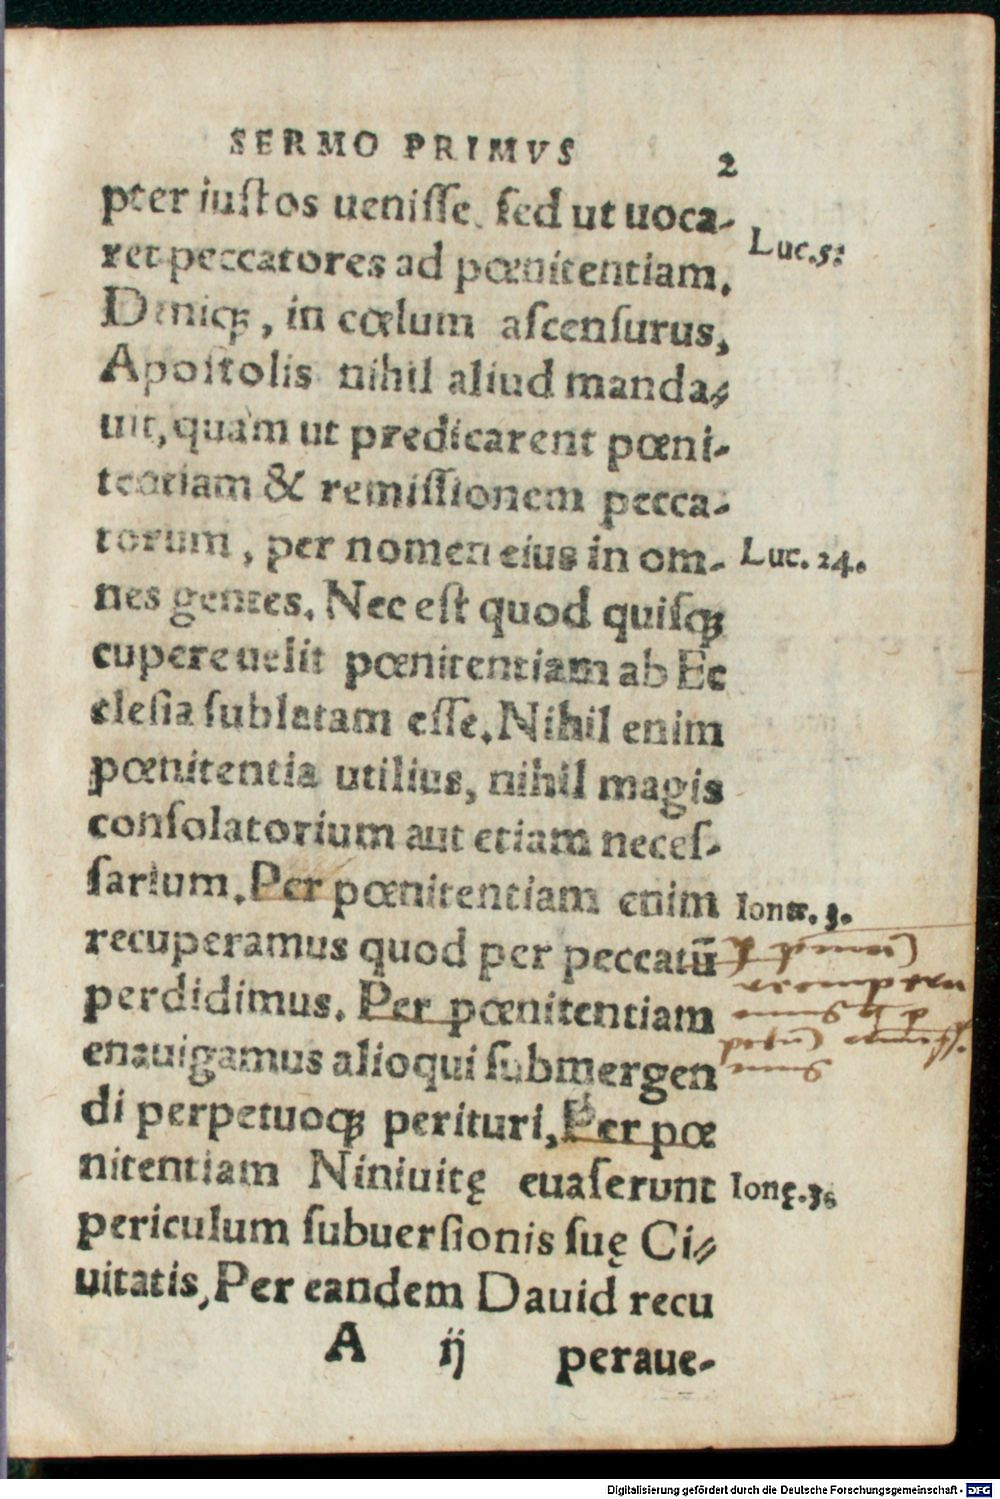 SERMO PRIMVS 2
pter iuſtos ueniſſe. ſed ut uoca-
Luc.5:
ret peccatores ad pœnitentiam.
Deniqꝫ, in cœlum aſcenſurus,
Apoſtolis nihil aliud manda⸗
uit, quàm ut predicarent pœni-
tentiam & remiſſionem pecca-
torum, per nomen eius in om- Luc. 24.
nes gentes. Nec eſt quod quiſqꝫ
cupere uelit pœnitentiam ab Ec
cleſia ſublatam eſſe. Nihil enim
pœnitentia utilius, nihil magis
conſolatorium aut etiam neceſ-
ſarium. Per pœnitentiam enim Ionæ. 3.
recuperamus quod per peccatũ
perdidimus. Per pœnitentiam
enauigamus alioqui ſubmergen
di perpetuoqꝫ perituri, Per pœ
nitentiam Niniuitę euaſerunt Ionę.3
periculum ſubuerſionis ſuę Ci⸗
uitatis, Per eandem Dauid recu
A ij peraue-
Digitalisierung gefördert durch die Deutsche Forschungsgemeinschaft - DFG